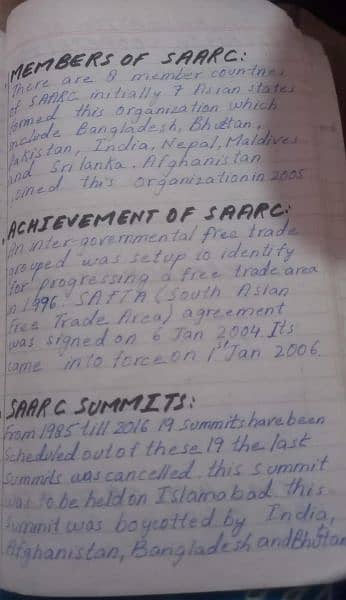 MEMBERS OF SAARC:
There are 8 member countries
of SAARC initially 7 Asian states
formed this organization which
include Bangladesh, Bhutan,
Pakistan, India, Nepal, Maldives
and Sri lanka. Afghanistan
joined this organization in 2005
ACHIEVEMENT OF SAARC:
An inter-governmental free trade
grouped was setup to identify
for progressing a free trade area
in 1996. SAFTA (South Asian
Free Trade Area) agreement
was signed on 6 Jan 2004. Its
came into force on 1st Jan 2006.
SAARC SUMMITS:
From 1985 till 2016 19 Summits have been
Scheduled out of these 19 the last
Summits was cancelled. this summit
was to be held on Islamabad. this
summit was boycotted by India,
Afghanistan, Bangladesh and Bhutan